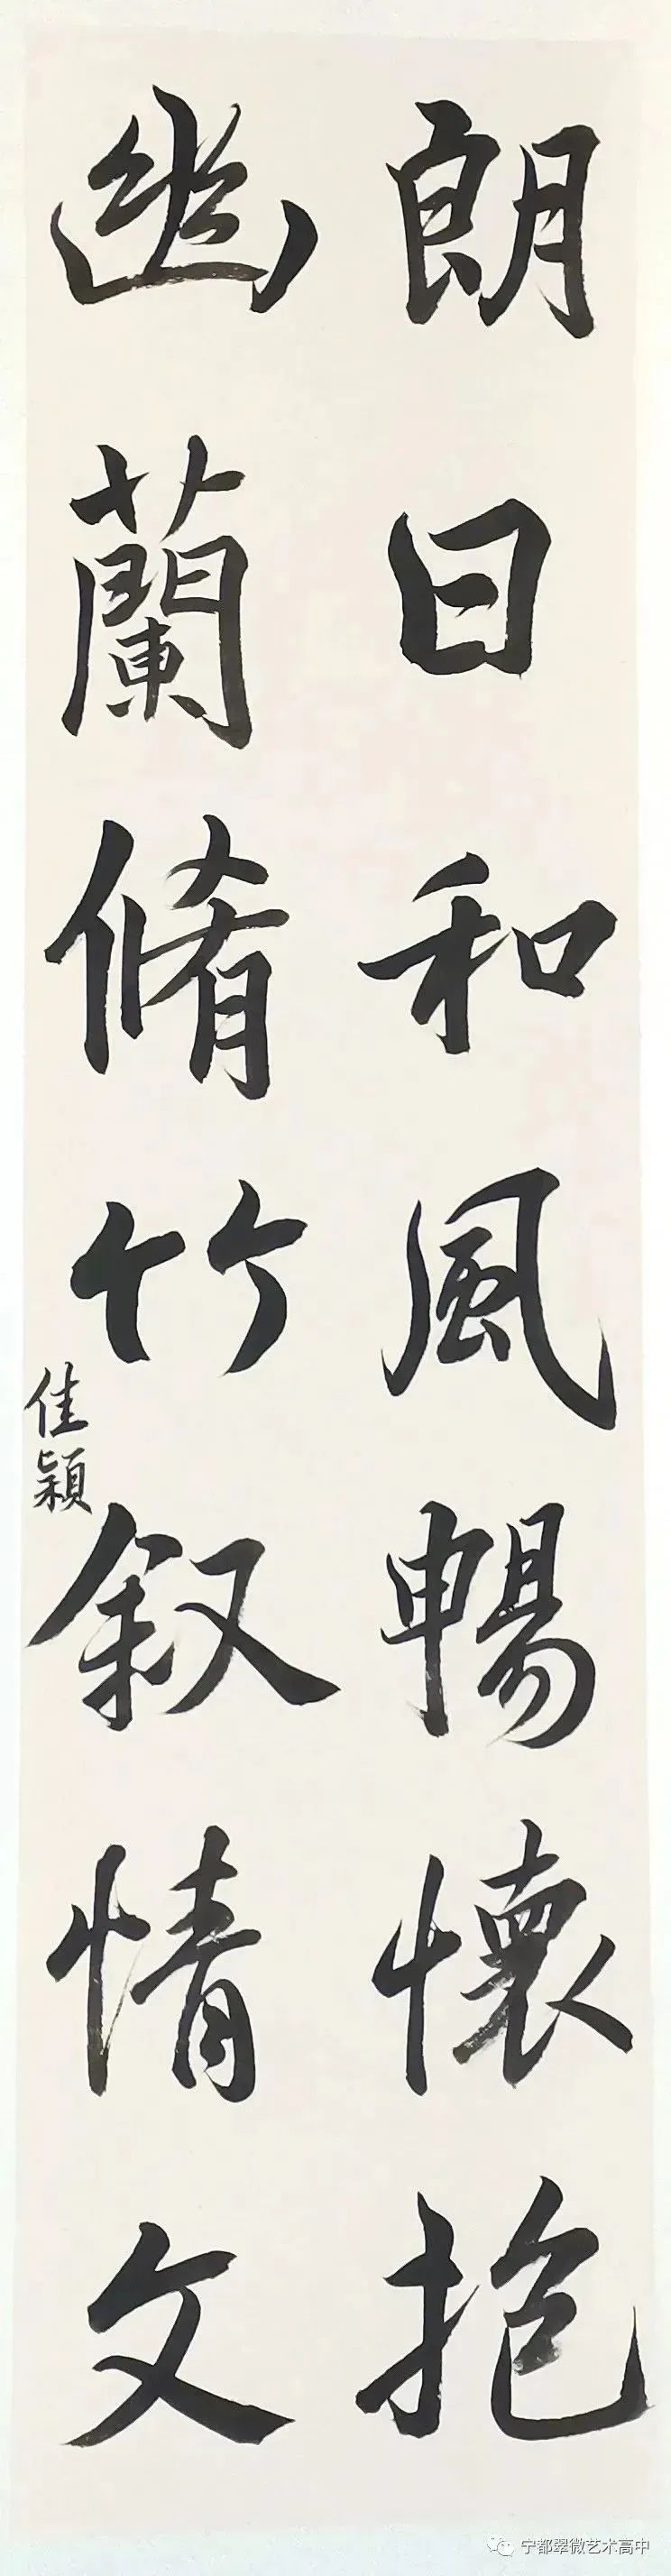 朗日和風暢懷抱
幽蘭脩竹叙情文
佳穎
宁都翠微艺术高中